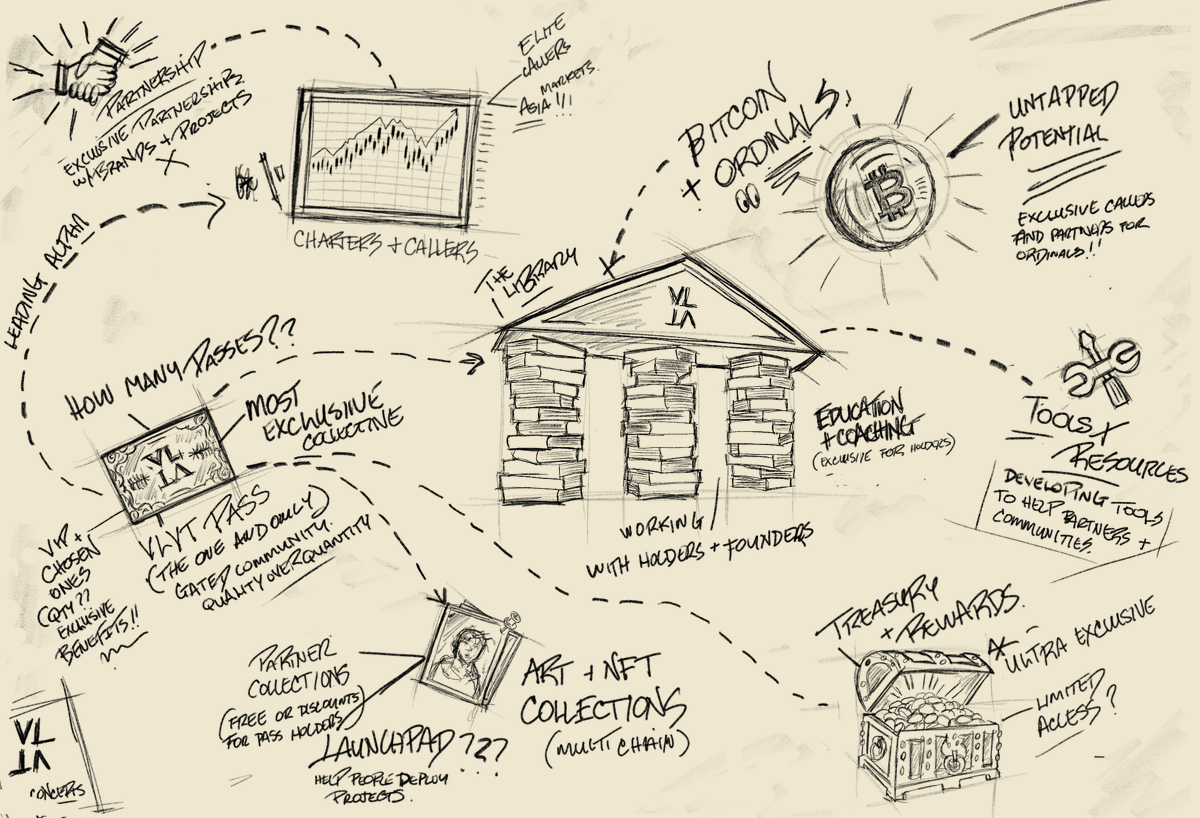 PARTNERSHIP
EXCLUSIVE PARTNERSHIPS
W/ BRANDS + PROJECTS
ELITE
CALLERS
MARKETS.
ASIA!!!
CHARTERS + CALLERS
LEADING ALPHA
BITCOIN
+ ORDINALS
UNTAPPED
POTENTIAL
EXCLUSIVE CALLERS
AND PARTNERS FOR
ORDINALS!!
THE
LIBRARY
VL
HOW MANY PASSES??
MOST
EXCLUSIVE
COLLECTIVE
VLVT PASS
(THE ONE AND ONLY)
GATED COMMUNITY.
QUALITY OVER QUANTITY
VIP +
CHOSEN
ONES
(QTY??
EXCLUSIVE
BENEFITS!!
EDUCATION
+ COACHING
(EXCLUSIVE FOR HOLDERS)
WORKING
WITH HOLDERS + FOUNDERS
TOOLS +
RESOURCES
DEVELOPING TOOLS
TO HELP PARTNERS +
COMMUNITIES.
PARTNER
COLLECTIONS
(FREE OR DISCOUNTS
FOR PASS HOLDERS)
LAUNCHPAD???
HELP PEOPLE DEPLOY
PROJECTS.
ART + NFT
COLLECTIONS
(MULTI CHAIN)
TREASURY
+ REWARDS.
ULTRA EXCLUSIVE
LIMITED
ACCESS?
VL
CONCEPTS